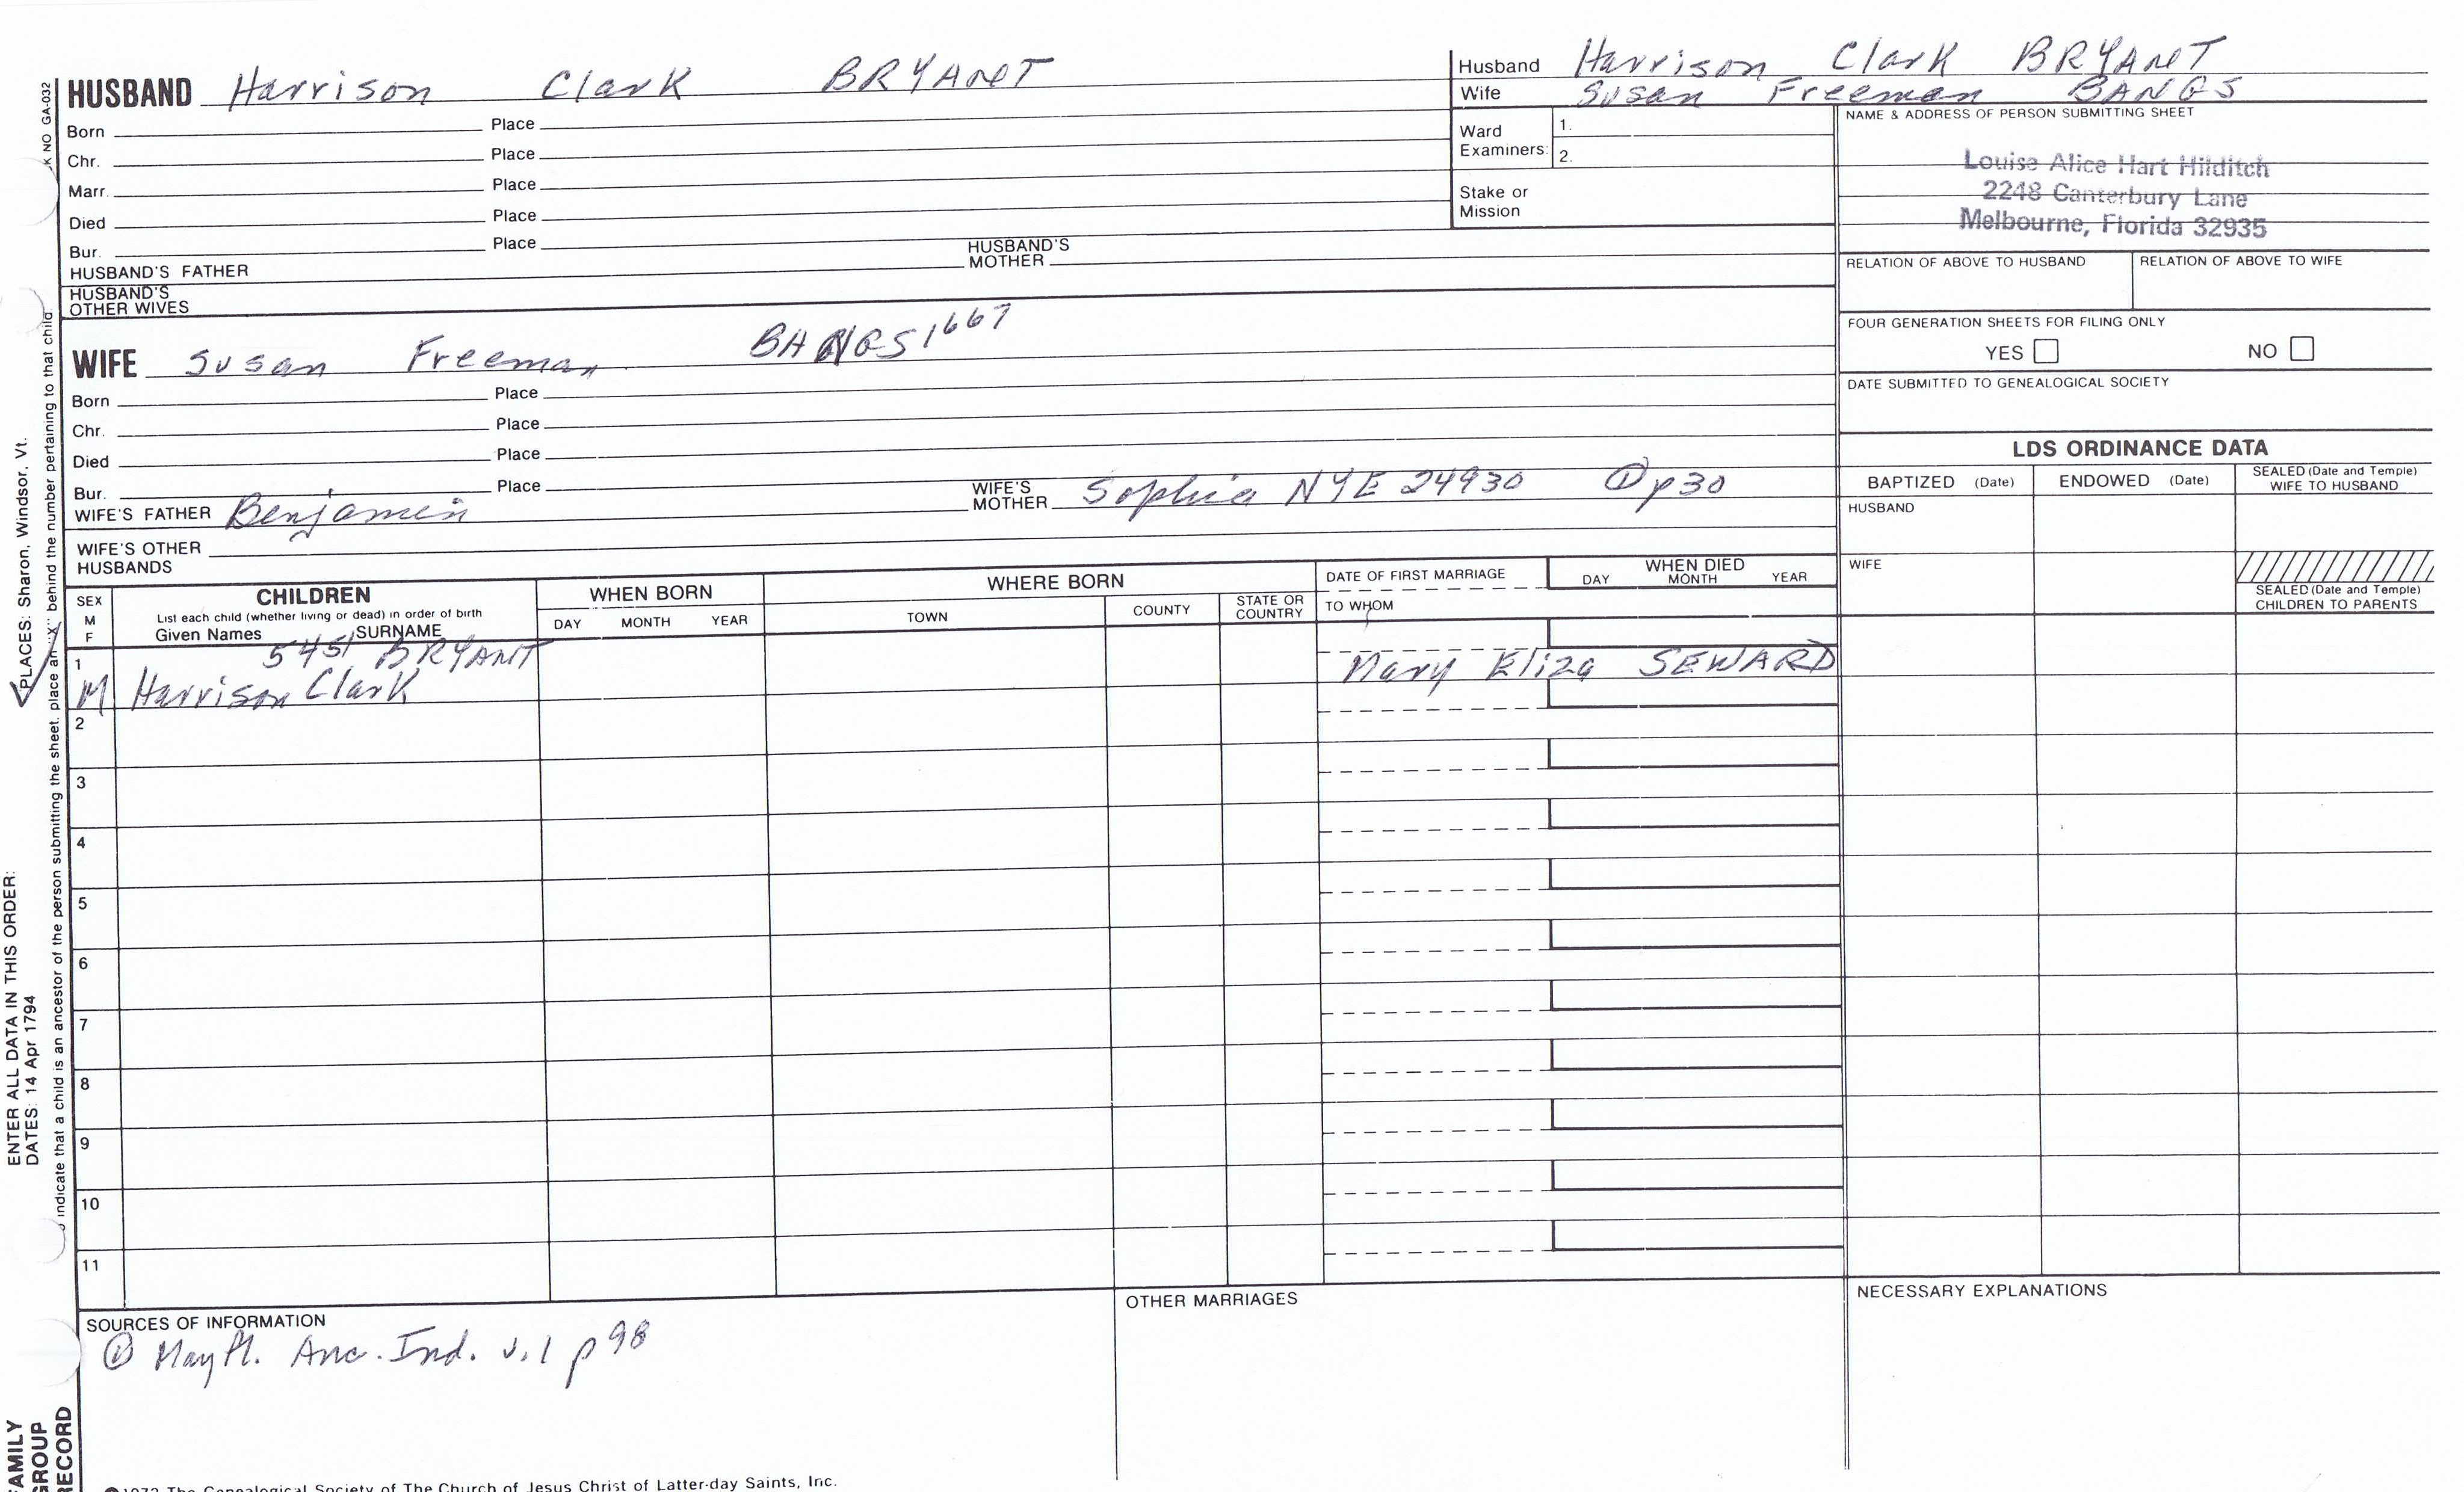 HUSBAND Harrison Clark BRYANT
Born Place
Chr. Place
Marr. Place
Died Place
Bur. Place
HUSBAND'S FATHER HUSBAND'S MOTHER
HUSBAND'S OTHER WIVES
WIFE Susan Freeman BANGS 1667
Born Place
Chr. Place
Died Place
Bur. Place
WIFE'S FATHER Benjamin WIFE'S MOTHER Sophia NYE 24930 ① p30
WIFE'S OTHER HUSBANDS
Husband Harrison Clark BRYANT
Wife Susan Freeman BANGS
Ward Examiners: 1.
2.
Stake or Mission
NAME & ADDRESS OF PERSON SUBMITTING SHEET
Louise Alice Hart Hilditch
2248 Canterbury Lane
Melbourne, Florida 32935
RELATION OF ABOVE TO HUSBAND RELATION OF ABOVE TO WIFE
FOUR GENERATION SHEETS FOR FILING ONLY
YES NO
DATE SUBMITTED TO GENEALOGICAL SOCIETY
LDS ORDINANCE DATA
BAPTIZED (Date) ENDOWED (Date) SEALED (Date and Temple) WIFE TO HUSBAND
HUSBAND
WIFE
SEALED (Date and Temple) CHILDREN TO PARENTS
SEX M F
CHILDREN
List each child (whether living or dead) in order of birth
Given Names SURNAME
WHEN BORN
DAY MONTH YEAR
WHERE BORN
TOWN COUNTY STATE OR COUNTRY
DATE OF FIRST MARRIAGE
TO WHOM
WHEN DIED
DAY MONTH YEAR
1 5451 BRYANT
M Harrison Clark Mary Eliza SEWARD
2
3
4
5
6
7
8
9
10
11
SOURCES OF INFORMATION
① May fl. Anc. Ind. v.1 p 98
OTHER MARRIAGES
NECESSARY EXPLANATIONS
1972 The Genealogical Society of The Church of Jesus Christ of Latter-day Saints, Inc.
K NO GA-032
indicate that a child is an ancestor of the person submitting the sheet, place an "X" behind the number pertaining to that child
ENTER ALL DATA IN THIS ORDER:
DATES: 14 Apr 1794
PLACES: Sharon, Windsor, Vt.
FAMILY
GROUP
RECORD